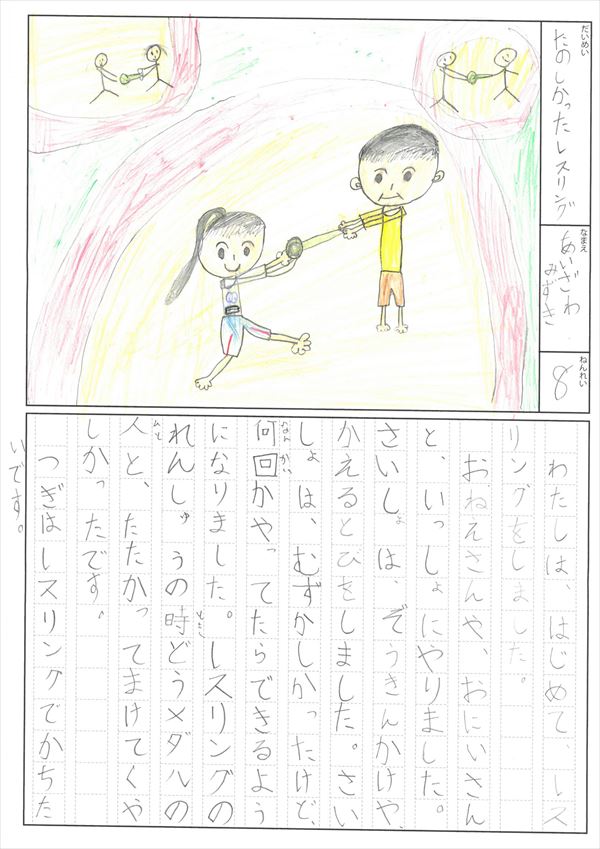 だいめい
たのしかったレスリング
なまえ
あいざわ
みずき
ねんれい
8
わたしは、はじめて、レス
リングをしました。
おねえさんや、おにいさん
と、いっしょにやりました。
さいしょは、ぞうきんかけや、
かえるとびをしました。さい
しょは、むずかしかったけど、
何回かやってたらできるよう
なんかい
になりました。レスリングの
れんしゅうの時どうメダルの
とき
人と、たたかってまけてくや
ひと
しかったです。
つぎはレスリングでかちた
いです。